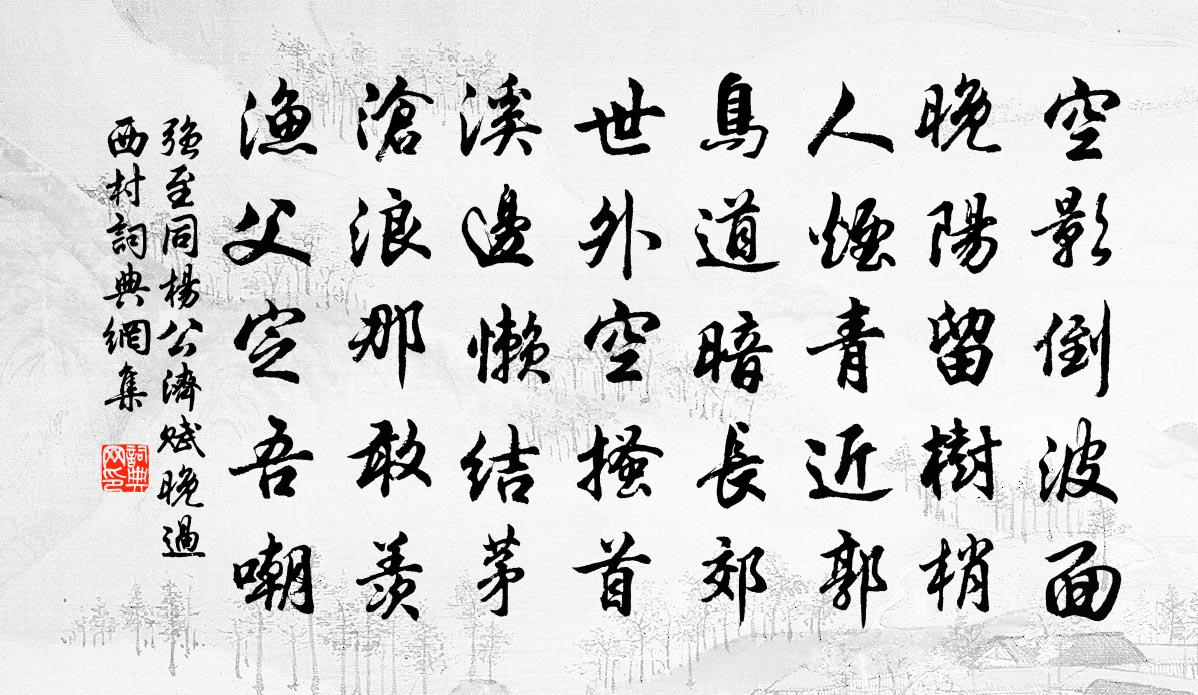 空影倒波面
晚陽留樹梢
人煙青近郭
鳥道暗長郊
世外空搔首
溪邊懶結茅
滄浪那敢羨
漁父定吾嘲
強至同楊公濟賦晚過
西村詞典網集
詞典
网印